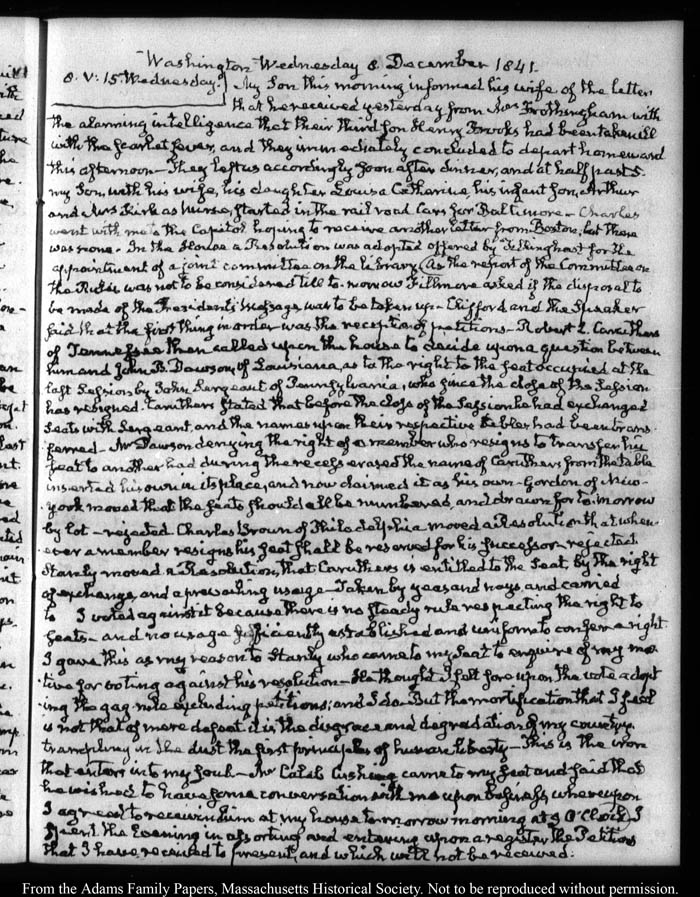 Washington Wednesday 8. December 1841.
8. V: 15. Wednesday. My Son this morning informed his wife of the letter
that he received yesterday from Mrs Frothingham with
the alarming intelligence that their third son Henry Brooks had been taken ill
with the scarlet fever, and they immediately concluded to depart homeward
this afternoon — They left us accordingly soon after dinner, and at half past 5.
my Son, with his wife, his daughter Louisa Catharine, his infant son, Arthur
and Mrs Kirk as Nurse, started in the rail road Cars for Baltimore — Charles
went with me to the Capitol hoping to receive another letter from Boston, but there
was none. In the House a Resolution was adopted offered by Tillinghast for the
appointment of a joint committee on the library. As the report of the Committee on
the Rules was not to be considered till to-morrow Fillmore asked if the disposal to
be made of the President's Message, was to be taken up — Clifford and the Speaker
said that the first thing in order was the reception of petitions — Robert L. Caruthers
of Tennessee then called upon the house to decide upon a question between
him and John B. Dawson of Louisiana, as to the right to the seat occupied at the
last Session by John Sergeant of Pennsylvania, who since the close of the Session
has resigned. Caruthers stated that before the close of the Session he had exchanged
seats with Sergeant, and the names upon their respective tables had been trans-
ferred — Mr Dawson denying the right of a member who resigns to transfer his
seat to another had during the recess erased the name of Caruthers from the table
inserted his own in its place, and now claimed it as his own — Gordon of New-
york moved that the seats should all be numbered, and drawn for to-morrow
by lot — rejected Charles Brown of Philadelphia moved a Resolution that when-
ever a member resigns his seat shall be reserved for his successor — rejected
Stanly moved a Resolution, that Caruthers is entitled to the Seat, by the right
of exchange, and a prevailing usage — Taken by yeas and nays and carried
I voted against it because there is no steady rule respecting the right to
seats — and no usage sufficiently established and uniform to confer a right
I gave this as my reason to Stanly who came to my seat to enquire of my mo-
tive for voting against his resolution — He thought I felt sore upon the vote adopt-
ing the gag rule excluding petitions; and I do — But the mortification that I feel
is not that of mere defeat it is the disgrace and degradation of my country,
trampling in the dust the first principles of human liberty — This is the iron
that enters into my soul — Mr Caleb Cushing came to my seat and said that
he wished to have some conversation with me upon business, whereupon
I agreed to receive him at my house to-morrow morning at 9 O'Clock. I
spent the Evening in assorting and entering upon a register the Petitions
that I have received to present, and which will not be received.
From the Adams Family Papers, Massachusetts Historical Society. Not to be reproduced without permission.